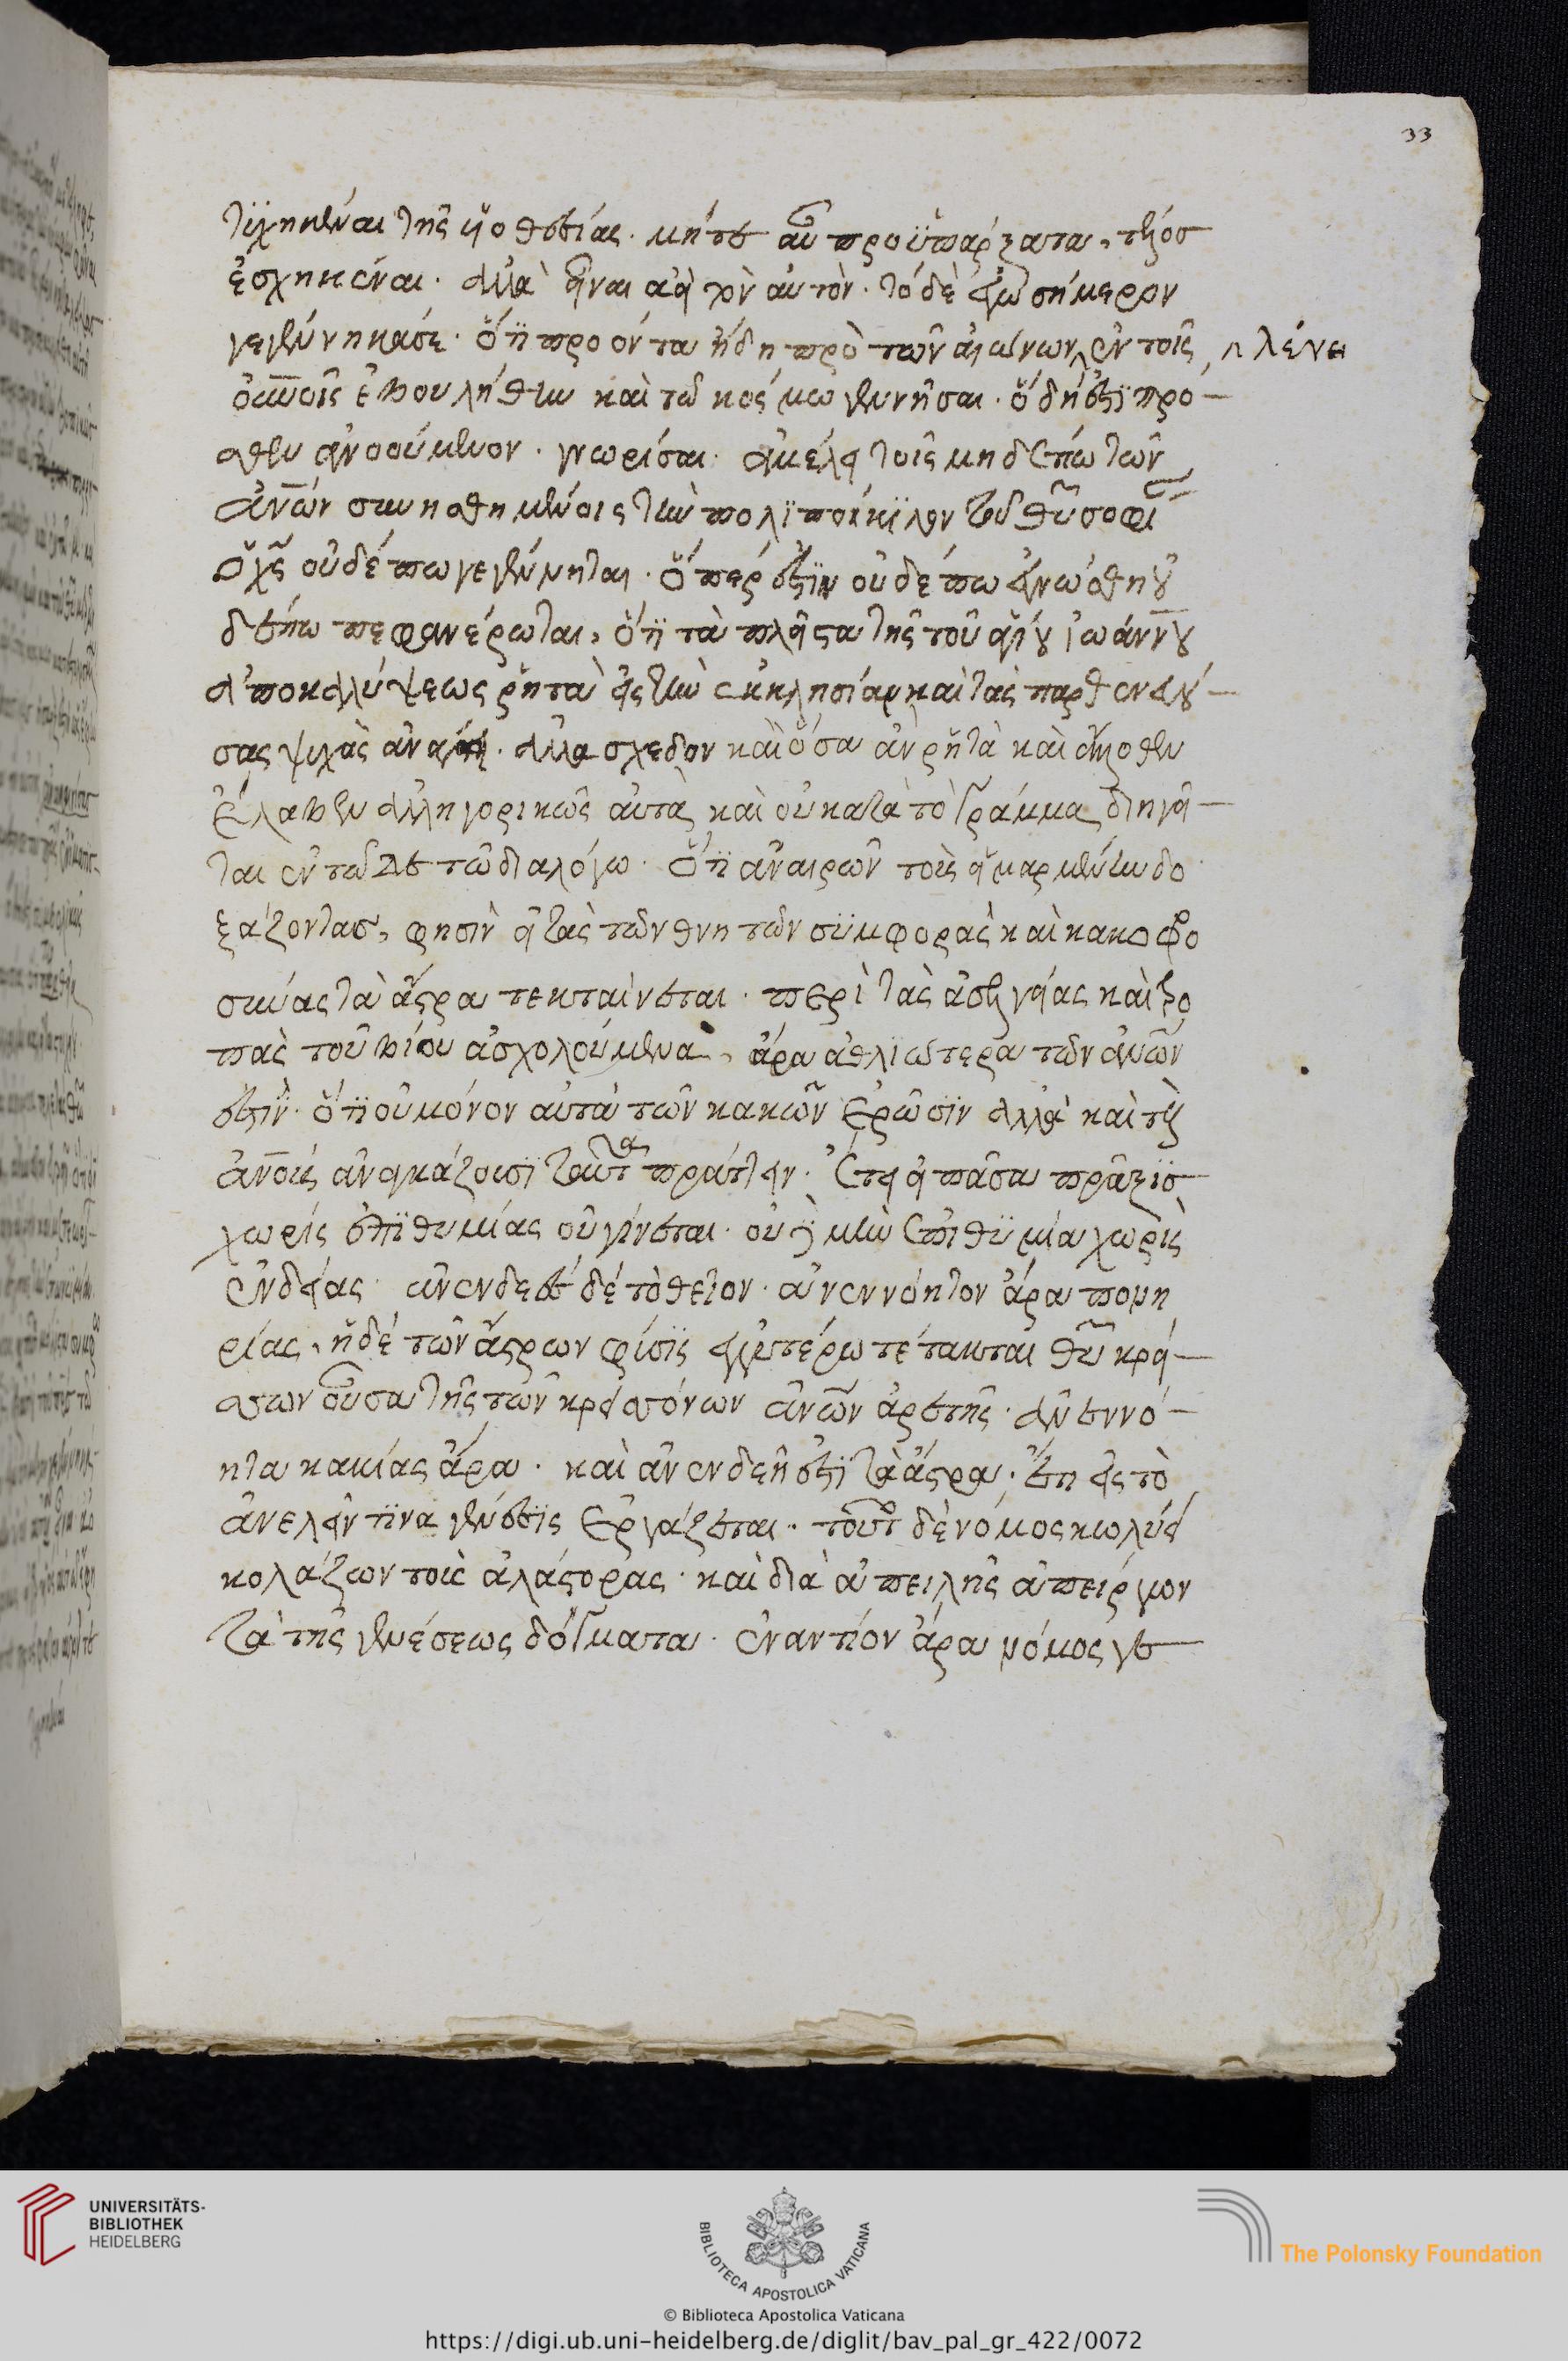 τυχηκέναι τῆς υἱοθεσίας. μήτε αὖ προϋπάρξαντα, τέλος
ἐσχηκέναι. ἀλλὰ εἶναι ἀεὶ τὸν αὐτόν. τὸ δὲ ἐγὼ σήμερον
γεγέννηκά σε. ὅτι προόντα ἤδη πρὸ τῶν αἰώνων ἐν τοῖς ^ λέγει
οὐνοῖς ἐβουλήθην καὶ τῷ κόσμῳ γεννῆσαι. ὃ δή ἐστι πρό-
σθεν ἀγνοούμενον. γνωρίσαι. ἀμέλει τοῖς μηδέπω τῶν
ἀνῶν συνησθημένοις τὴν πολυποίκιλον τοῦ θῦ σοφί
ὁ χς οὐδέπω γεγέννηται. ὅπερ ἐστὶν οὐδέπω ἐγνώσθη οὐ
δέπω πεφανέρωται, ὅτι τὰ πλεῖστα τῆς τοῦ ἁγίου ἰωάννου
ἀποκαλύψεως ῥητὰ εἰς τὴν ἐκκλησίαν καὶ τὰς παρθενευού-
σας ψυχὰς ἀνάγει. ἀλλὰ σχεδὸν καὶ ὅσα ἂν ῥητὰ καὶ ἄλλοθεν
ἔλαβεν ἀλληγορικῶς αὐτὰ καὶ οὐ κατὰ τὸ γράμμα διηγεῖ-
ται ἐν τῷδε τῷ διαλόγῳ. ὅτι ἀναιρῶν τοὺς εἱμαρμένην δο
ξάζοντας, φησὶν εἰ τὰς τῶν θνητῶν συμφορὰς καὶ κακοφρο
σύνας τὰ ἄστρα τεκταίνεται. περὶ τὰς ἀσελγείας καὶ τρο
πὰς τοῦ βίου ἀσχολούμενα, ἄρα ἀθλιώτερα τῶν ἀνῶν
ἐστίν. ὅτι οὐ μόνον αὐτὰ τῶν κακῶν ἐρῶσιν ἀλλὰ καὶ τοὺς
ἀνους ἀναγκάζουσι ταῦτα πράττειν. ἔτι εἰ πᾶσα πρᾶξις
χωρὶς ἐπιθυμίας οὐ γίνεται. οὐ μὴν ἐπιθυμία χωρὶς
ἐνδείας. ἀνενδεὲς δὲ τὸ θεῖον. ἀνεννόητον ἄρα πονη
ρίας. ἡ δὲ τῶν ἄστρων φύσις ἐγγυτέρω τέτακται θῦ κρεί-
ττων οὖσα τῆς τῶν κρειττόνων ἀνῶν ἀρετῆς. ἀνεννό-
ητα κακίας ἄρα. καὶ ἀνενδεῆ ἐστὶ τὰ ἄστρα. ἔτι εἰς τὸ
ἀνελεῖν τινα γένεσις ἐργάζεται. τοῦτο δὲ νόμος κωλύει
κολάζων τοὺς ἀλάστορας. καὶ διὰ ἀπειλῆς ἀπείργων
τὰ τῆς γενέσεως δόγματα. ἐναντίον ἄρα νόμος γε-
33
UNIVERSITÄTS-
BIBLIOTHEK
HEIDELBERG
BIBLIOTECA APOSTOLICA VATICANA
The Polonsky Foundation
© Biblioteca Apostolica Vaticana
https://digi.ub.uni-heidelberg.de/diglit/bav_pal_gr_422/0072